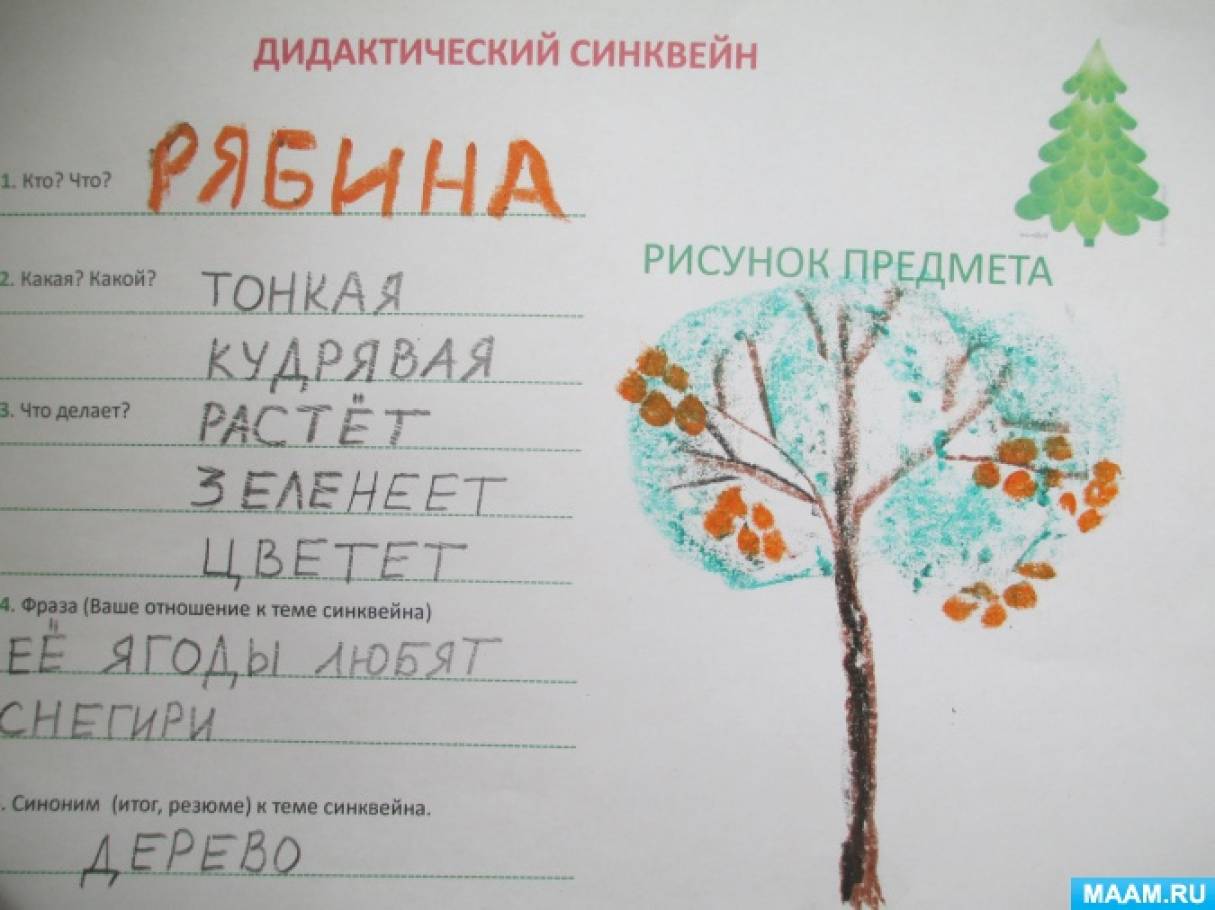 ДИДАКТИЧЕСКИЙ СИНКВЕЙН
1. Кто? Что? РЯБИНА
РИСУНОК ПРЕДМЕТА
2. Какая? Какой? ТОНКАЯ
КУДРЯВАЯ
3. Что делает? РАСТЁТ
ЗЕЛЕНЕЕТ
ЦВЕТЕТ
4. Фраза (Ваше отношение к теме синквейна)
ЕЁ ЯГОДЫ ЛЮБЯТ
СНЕГИРИ
. Синоним (итог, резюме) к теме синквейна.
ДЕРЕВО
MAAM.RU